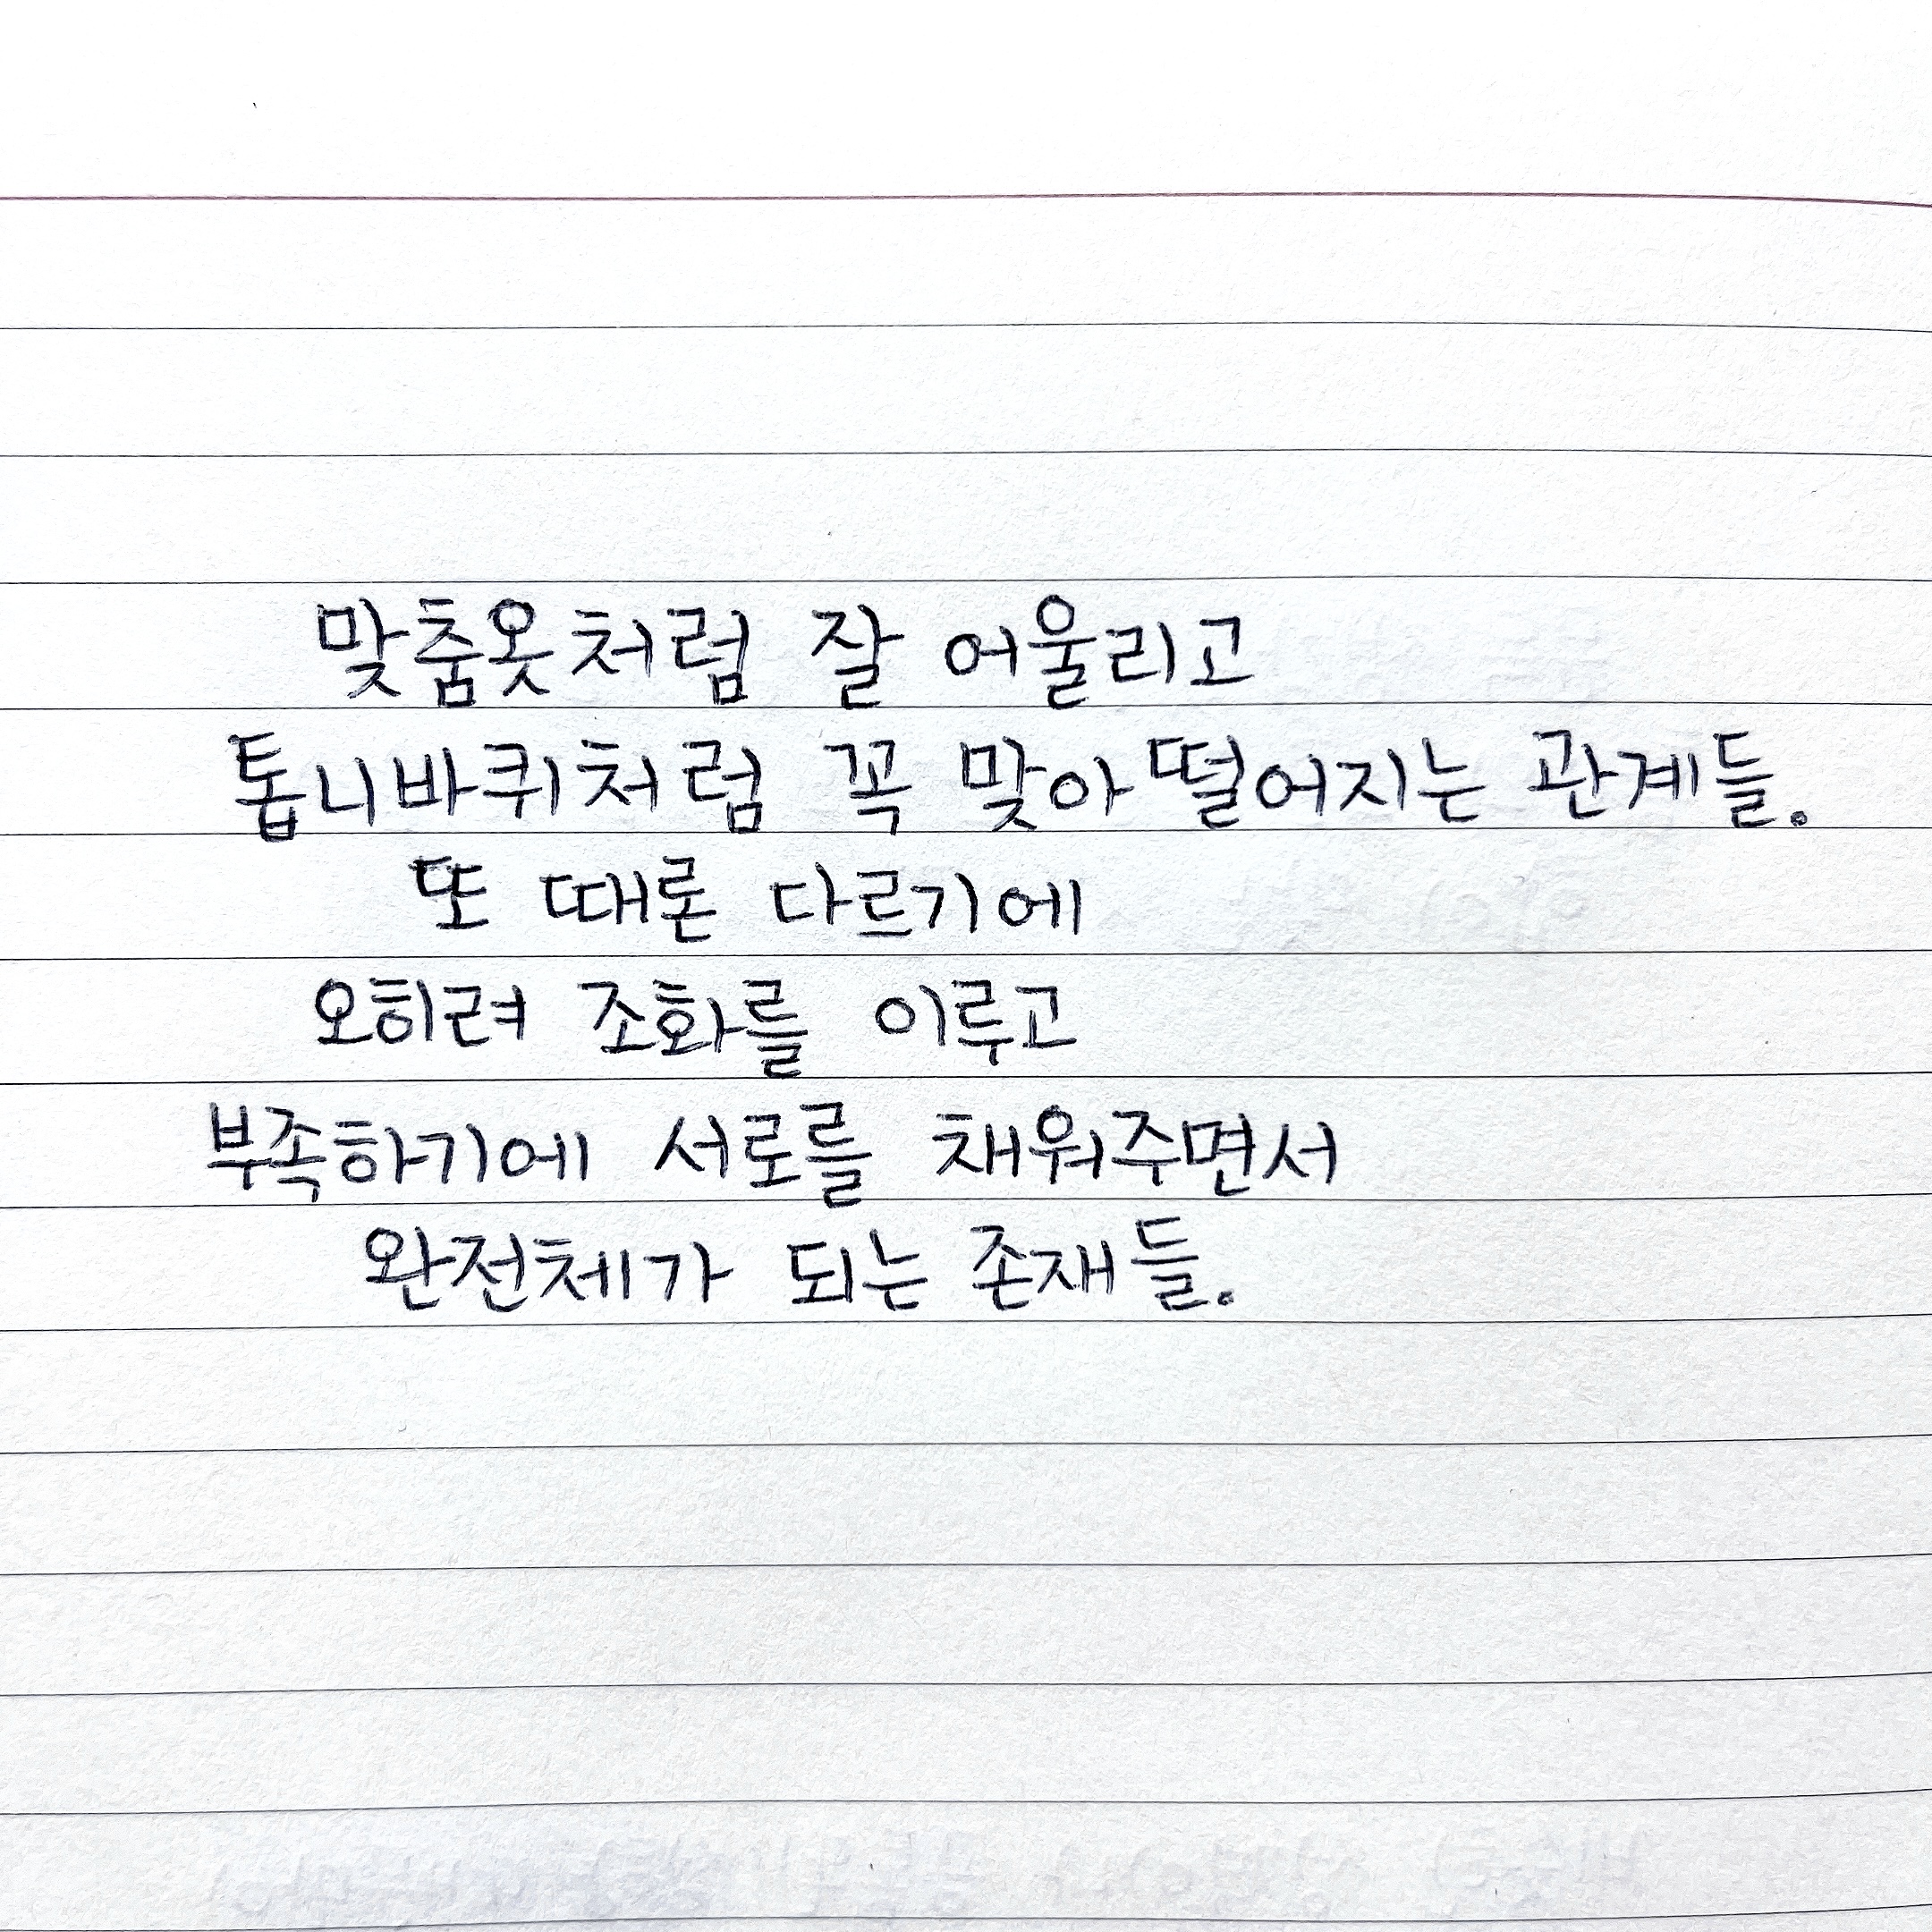 맞춤옷처럼 잘 어울리고
톱니바퀴처럼 꼭 맞아떨어지는 관계들.
또 때론 다르기에
오히려 조화를 이루고
부족하기에 서로를 채워주면서
완전체가 되는 존재들.